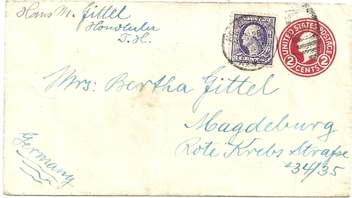 Hans M. Fittel
Honolulu
T. H.
UNITED STATES POSTAGE
2 CENTS 2
Mrs: Bertha Fittel
Magdeburg
Rote Krebs Straße
234/35
Germany